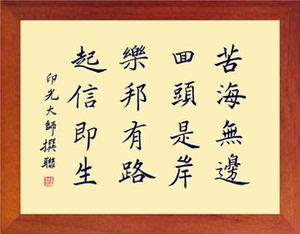 苦海無邊
回頭是岸
樂邦有路
起信即生
印光大師撰聯